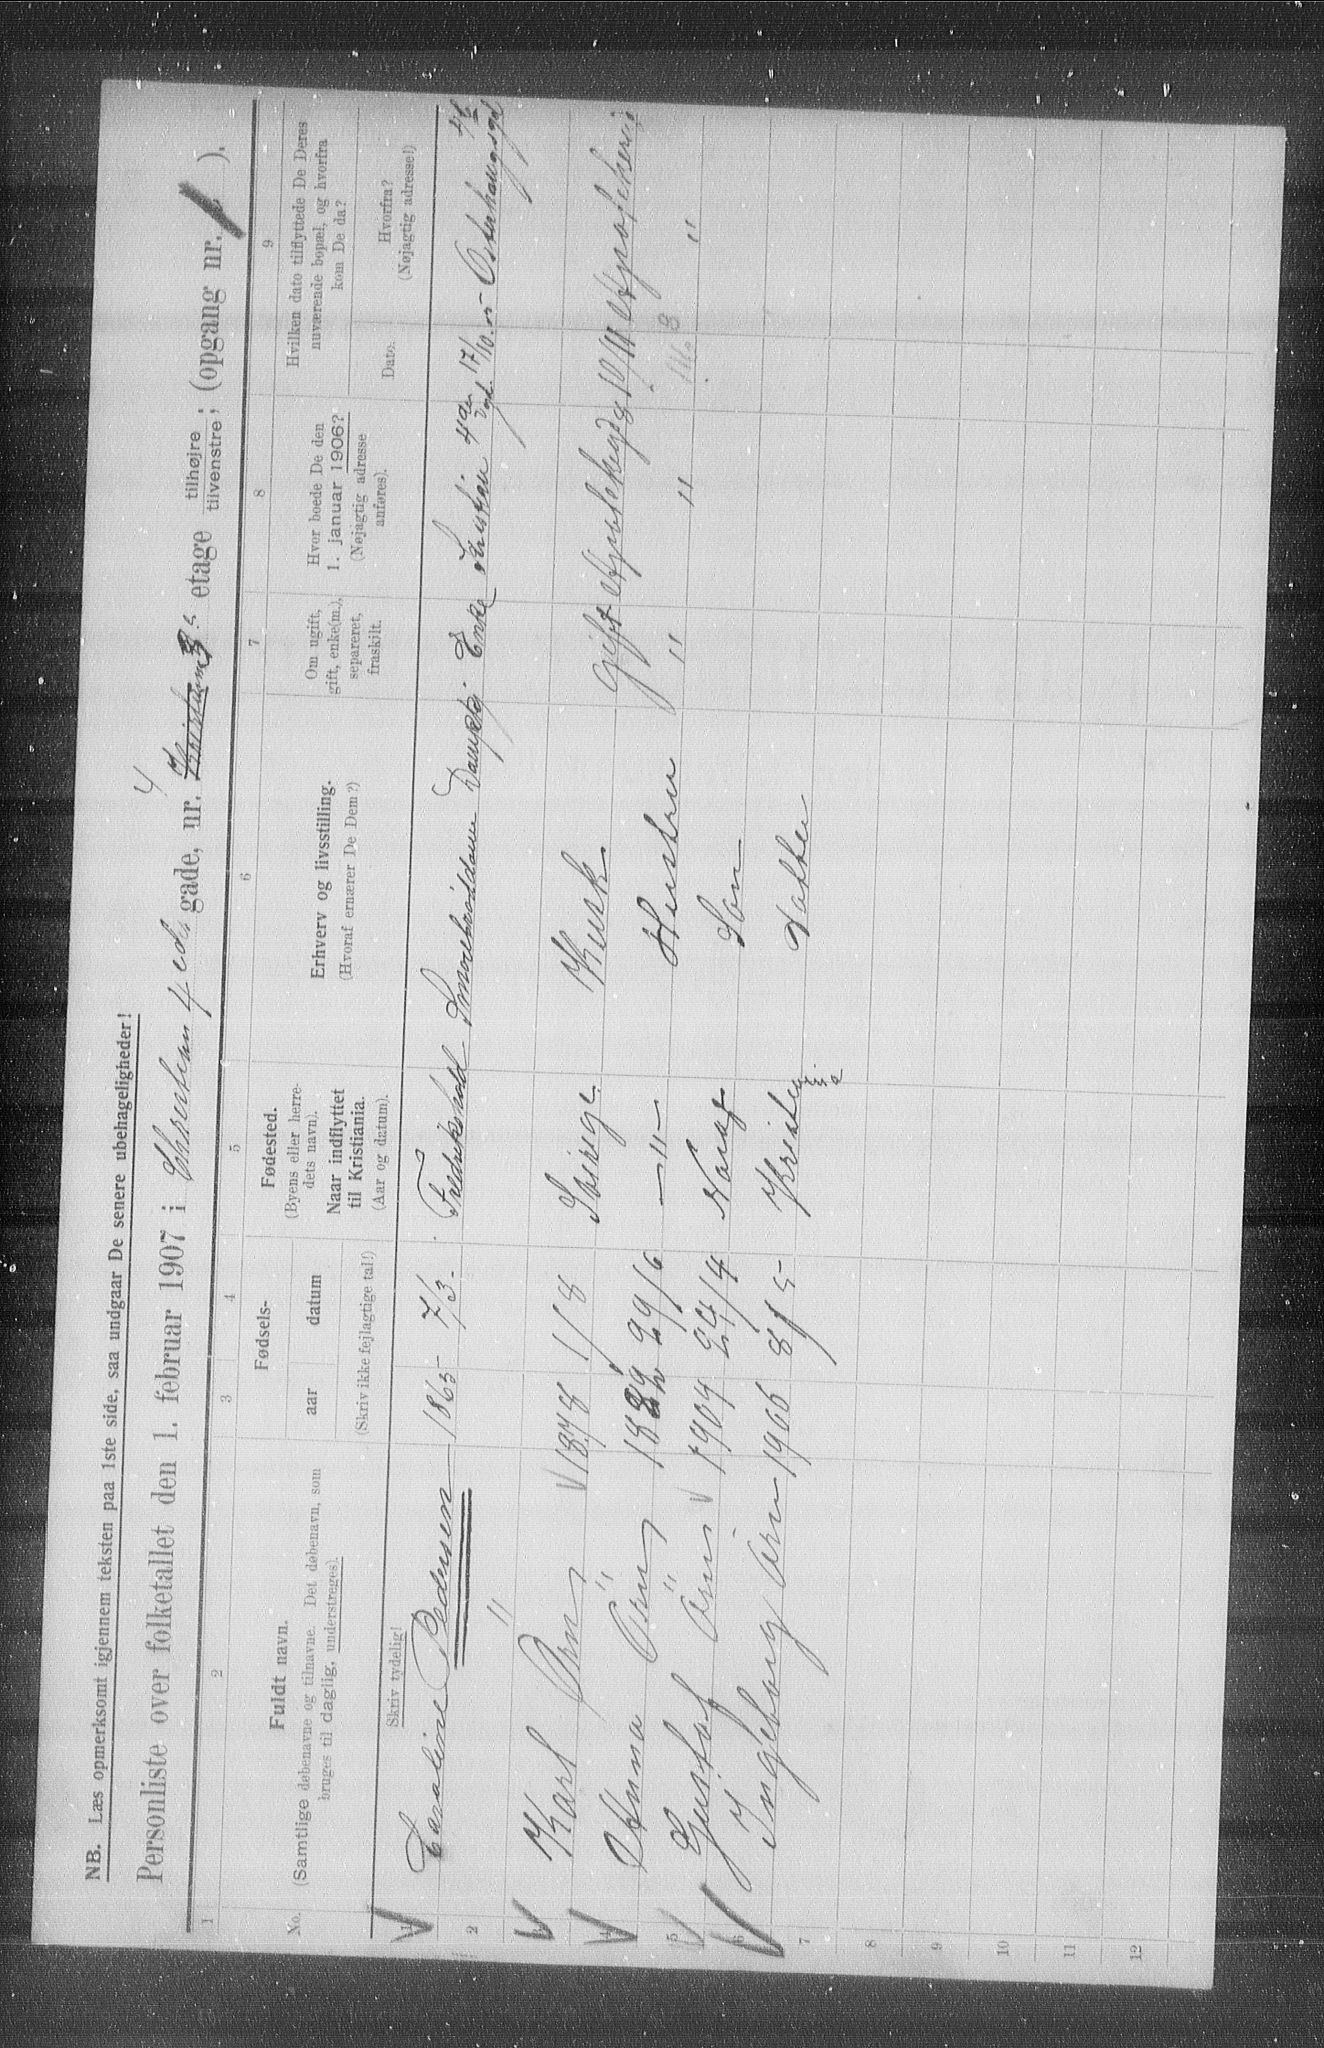 NB. Læs opmerksomt igjennem teksten paa 1ste side, saa undgaar De senere ubehageligheder!
Personliste over folketallet den 1. februar 1907 i Christian 4 edes gade, nr. 4 etage tilhøjre; tilvenstre; (opgang nr. ).
1 2 3 4 5 6 7 8 9
No. Fuldt navn. (Samtlige døbenavne og tilnavne. Det døbenavn, som bruges til daglig, understreges).
Fødsels- aar datum (Skriv ikke fejlagtige tal!)
Fødested. (Byens eller herredets navn). Naar indflyttet til Kristiania. (Aar og datum).
Erhverv og livsstilling. (Hvoraf ernærer De Dem?)
Om ugift, gift, enke(m.), separeret, fraskilt.
Hvor boede De den 1. januar 1906? (Nøjagtig adresse anføres).
Hvilken dato tilflyttede De Deres nuværende bopæl, og hvorfra kom De da?
Dato. Hvorfra? (Nøjagtig adresse!)
Skriv tydelig!
1 Caroline Pedersen 1865 7/3 Fredrikshald Enke 17/10. 05
2 "
3 Karl Örn 1878 1/8 Sverige Kusk Gift
4 Anna Örn 29/6 —"— Hustru "  "  "
5 Gustaf Örn 1904 24/4 Norge Søn
6 Ingeborg Örn 1906 8/5 Kristiania Datter
7
8
9
10
11
12